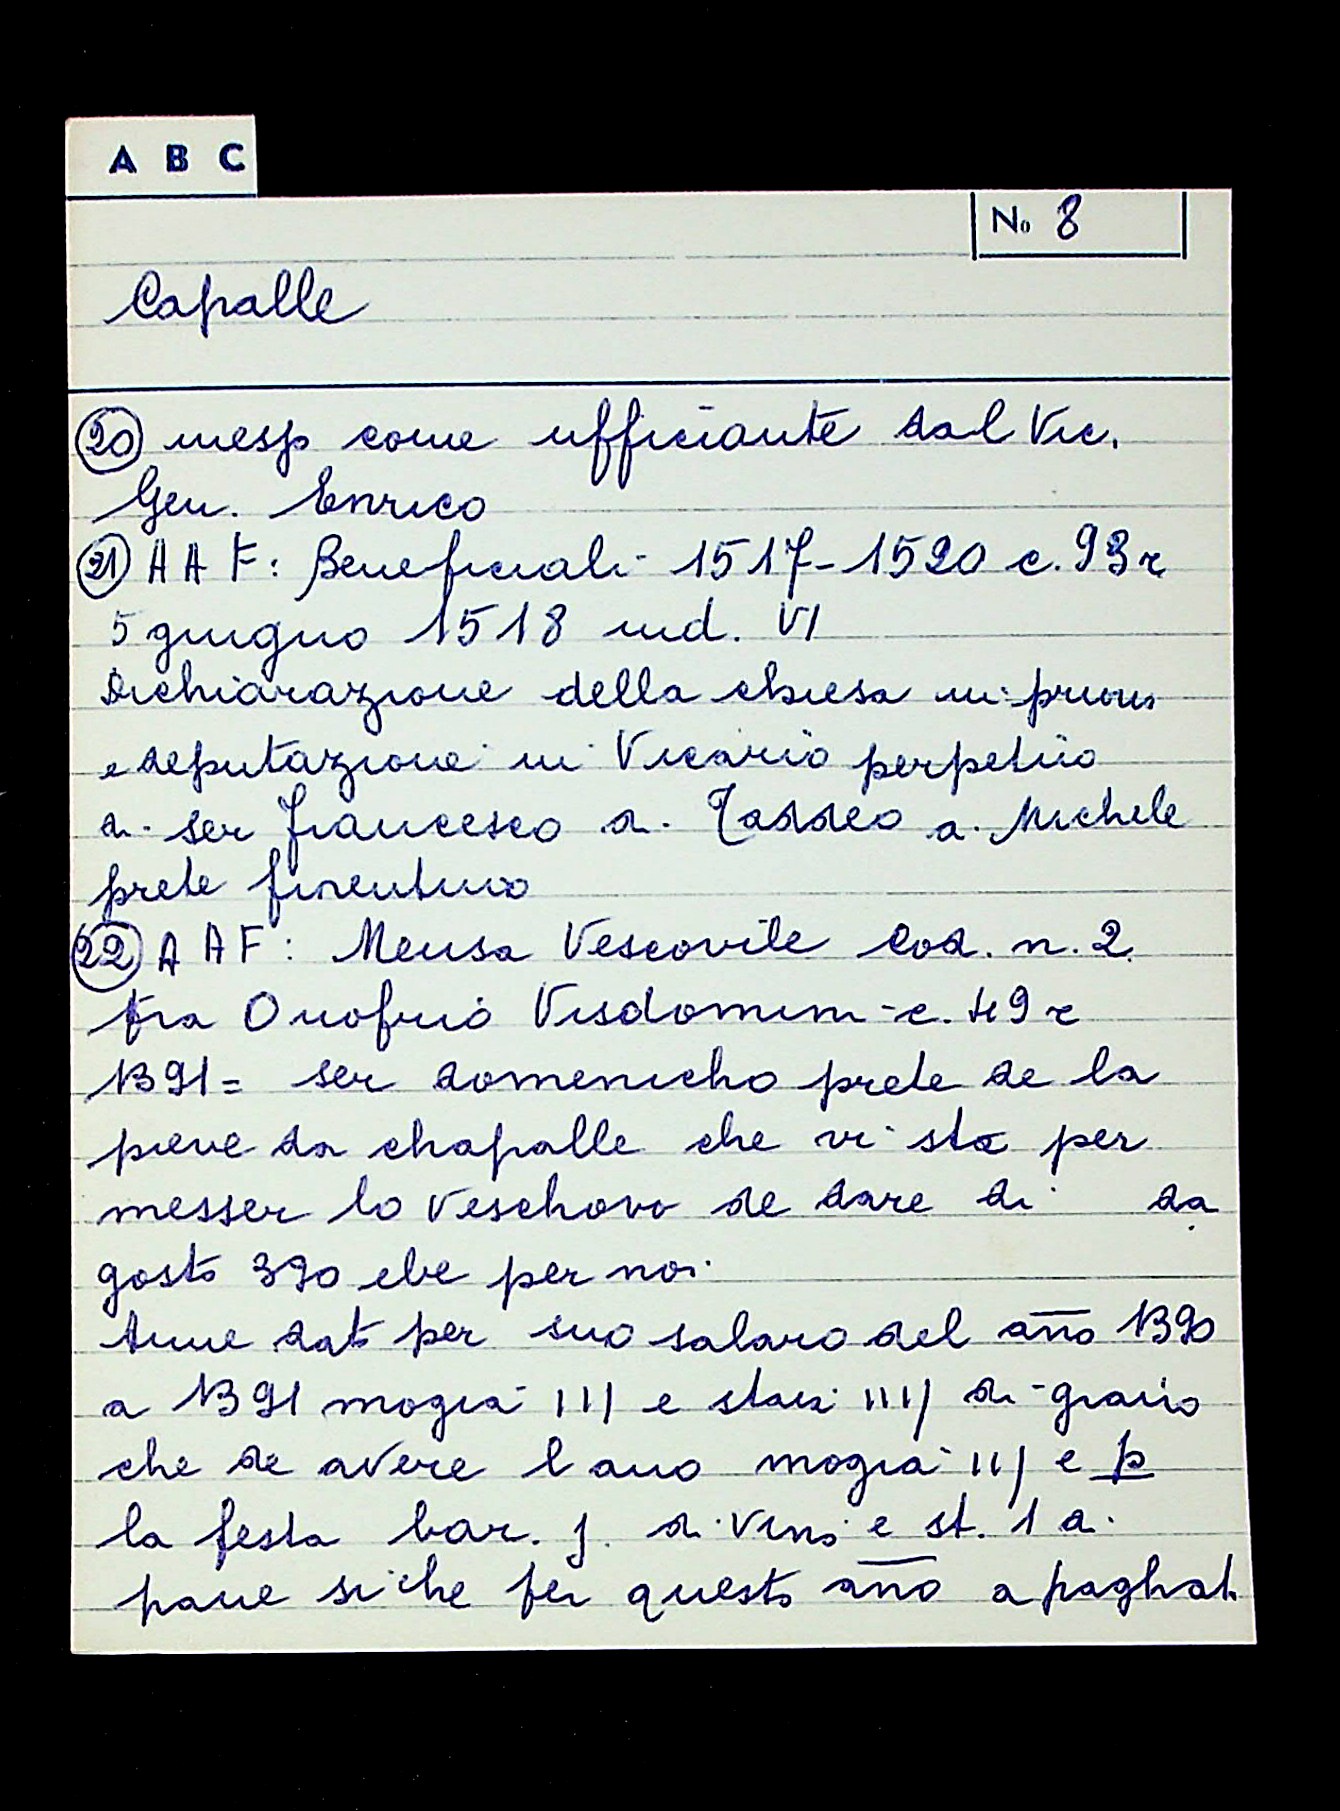 A B C
No 8
Capalle
20 messo come ufficiante dal Vic.
Gen. Enrico
21 A A F: Beneficiali 1517-1520 c. 93 r
5 giugno 1518 ind. VI
Dichiarazione della chiesa in prioria
e deputazione in Vicario perpetuo
di ser Francesco di Taddeo di Michele
prete fiorentino
22 A A F: Mensa Vescovile Cod. n. 2
fra Onofrio Visdomini - c. 49 r
1391 = ser domenicho prete de la
pieve da chapalle che vi sta per
messer lo veschovo de dare di da
gosto 390 ebe per noi
Anne dato per suo salaro del año 1390
a 1391 mogia III e staia IIII di grano
che de avere l ano mogia III e p
la festa bar. j. di vino e st. 1 di
pane siche per questo año a paghato